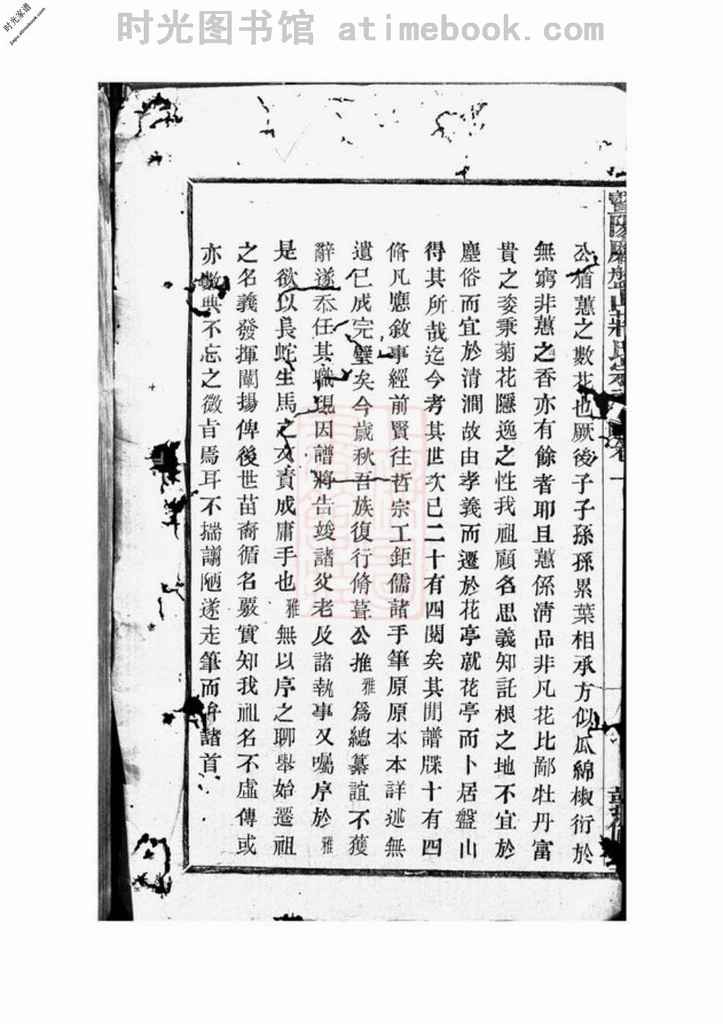 时光图书馆 atimebook.com
时光家谱
jiapu.atimebook.com
公猶蕙之數花也厥後子子孫孫累葉相承方似瓜綿椒衍於
無窮非蕙之香亦有餘者耶且蕙係清品非凡花比鄙牡丹富
貴之姿秉菊花隱逸之性我祖顧名思義知託根之地不宜於
塵俗而宜於清澗故由孝義而遷於花亭就花亭而卜居盤山
得其所哉迄今考其世次已二十有四閱矣其閒譜牒十有四
脩凡應敘事經前賢往哲宗工鉅儒諸手筆原原本本詳述無
遺已成完璧矣今歲秋吾族復行脩葺公推雅為總纂誼不獲
辭遂忝任其職現因譜將告竣諸父老及諸執事又囑序於雅
是欲以長蛇生馬之文責成庸手也雅無以序之聊舉始遷祖
之名義發揮闡揚俾後世苗裔循名覈實知我祖名不虛傳或
亦數典不忘之微旨焉耳不揣謭陋遂走筆而弁諸首
盤山蔣氏宗 卷一